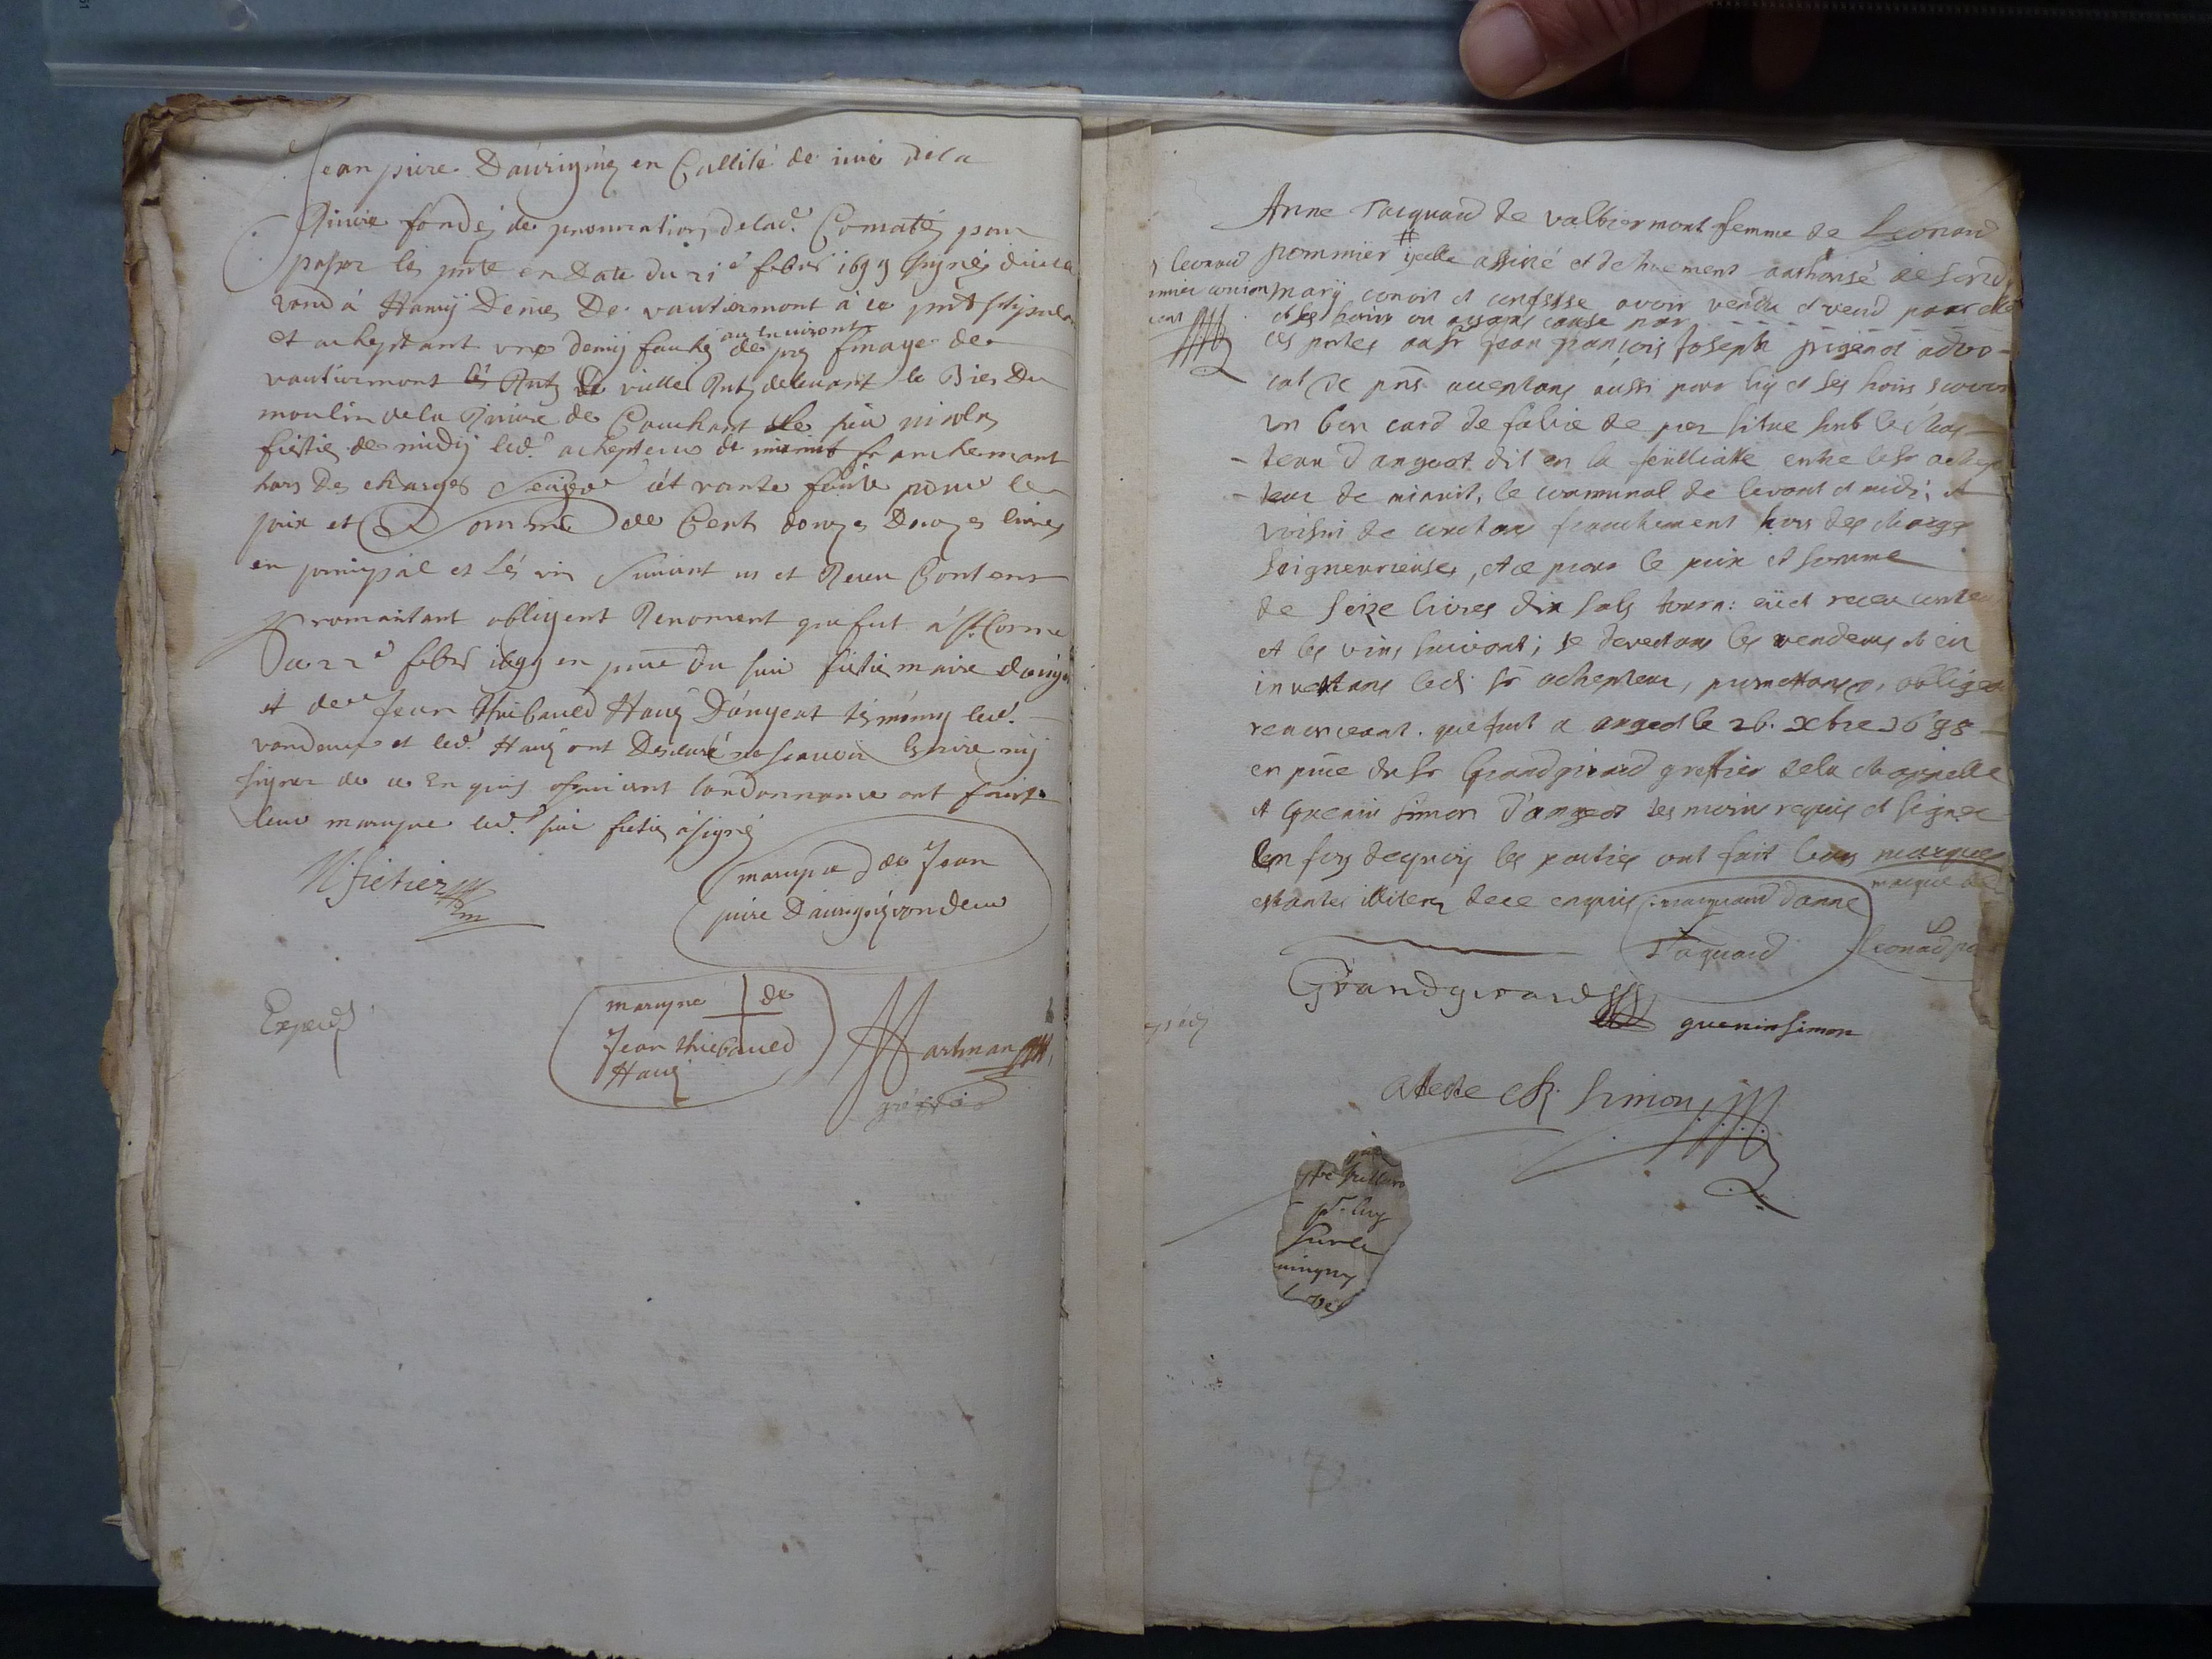 Jean piere Daurigney en Callité de
fondé de procuration delad.e Comaté pour
passer les pnte en Date du 21e febvr 1699 signés
vend à Hanrÿ Deniez De vautiermont à ce pnt stipulan
et acheptant une demy fauche de prey finage de
au environt
vautiermont de vielle delevant le Bies Du
moulin de la Riviere de Couchant le sieur nicolas
fietier de midy led.t achepteur de minuit franchemant
hors Des charges Seigr cét vante faite pour le
prix et Somme de Cent douze livres
en principal et lés vin suivant Receu Contens
Promaitant obligent Renoncent que fut à St Cosme
Du 22e febvr 1699 en pnce Du sieur fietier maire dangeo
et de Jean Thiebaued Haug Dángeot témoing led.t
vandeur et led.t Haug ont Desclaré ne scavoir Escrire nÿ
signer de ce Enquis suivant londonnance ont faict
leur marque led.t sieur fietier à signé
N fietier
marque de Jean
piere Daurignéÿ vondeur
Exped
marque de
Jean thiebaued
Haug
Hartman
gréffié
Anne Taiquard de valbiermont femme de Leonard
pommier # ÿcelle assisté et dehuement authorisé de sond
marÿ conoit et confesse avoir vendu et vend pour elle
et ses hoirs ou ayans cause par
ces pntes au Sr Jean françois Joseph prigenot advo-
cat de pnt acceptans aussi pour luy et ses hoirs
un bon card de faulx de prez situe sub le chas-
- teau d angeot dit en la feulliatte entre led Sr achep
- teur de minuit, le communal de levant et midi, et
voisin de couchans franchement hors des charges
Seigneurieuses, et ce pour le prix et somme
de seize livres dix sols tourn: eüe receu conten
et les vins suivant; se devestans les vendeurs et en
investans led. Sr achepteur, promettans, obligea
renonceant. que fust a angeot le 26. Xbre 1698 -
en pnce du Sr Grandgirard greffier dela chappelle
et Guenin Simon d'angeot tesmoins requis et signes
en foy dequoy les parties ont fait leurs marques
estantes illiteres dece enquis marquard danne
Taquard
marque de
Leonard po
leonard
Grandgirard
guenin simon
Ateste Ch. Simon